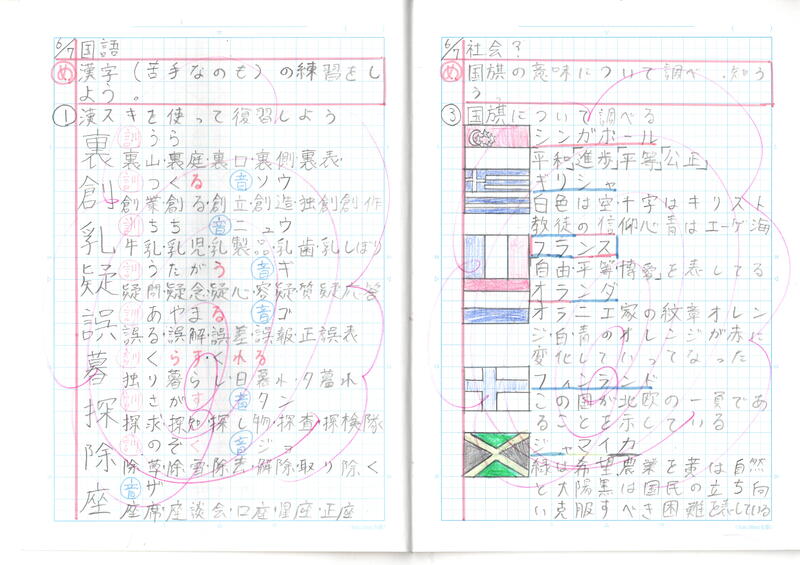 6/7 国語
め 漢字(苦手なのも)の練習をし
よう。
① 漢スキを使って復習しよう
裏 訓 うら
裏山・裏庭・裏口・裏側・裏表・
創 訓 つくる 音 ソウ
創業・創る・創立・創造・独創・創作
乳 訓 ちち 音 ニュウ
牛乳・乳児・乳製品・乳歯・乳しぼり
疑 訓 うたがう 音 ギ
疑問・疑念・疑心・容疑・質疑応答
誤 訓 あやまる 音 ゴ
誤る・誤解・誤差・誤報・正誤表
暮 訓 くらす・くれる
独り暮らし・日暮れ・夕暮れ
探 訓 さがす 音 タン
探求・探知・探し物・探査・探検隊
除 訓 のぞ 音 ジョ
除草・除雪・除去・解除・取り除く
座 音 ザ
座席・座談会・口座・星座・正座
6/7 社会?
め 国旗の意味について調べ、知ろ
う。
③ 国旗について調べる
シンガポール
平和「進歩」「平等」「公正」
ギリシャ
白色は空十字はキリスト
教徒の信仰心青はエーゲ海
フランス
自由・平等・博愛を表してる
オランダ
オラニエ家の紋章オレン
ジ・白・青のオレンジが赤に
変化していってなった
フィンランド
この国が北欧の一員であ
ることを示している
ジャマイカ
緑は希望農業を黄は自然
と太陽黒は国民の立ち向
い克服すべき困難を表している